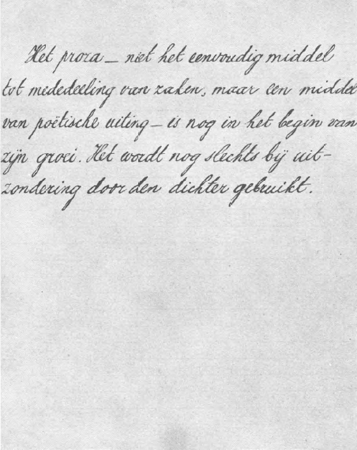 Het proza — niet het eenvoudig middel
tot mededeeling van zaken, maar een middel
van poëtische uiting — is nog in het begin van
zijn groei. Het wordt nog slechts bij uit-
zondering door den dichter gebruikt.